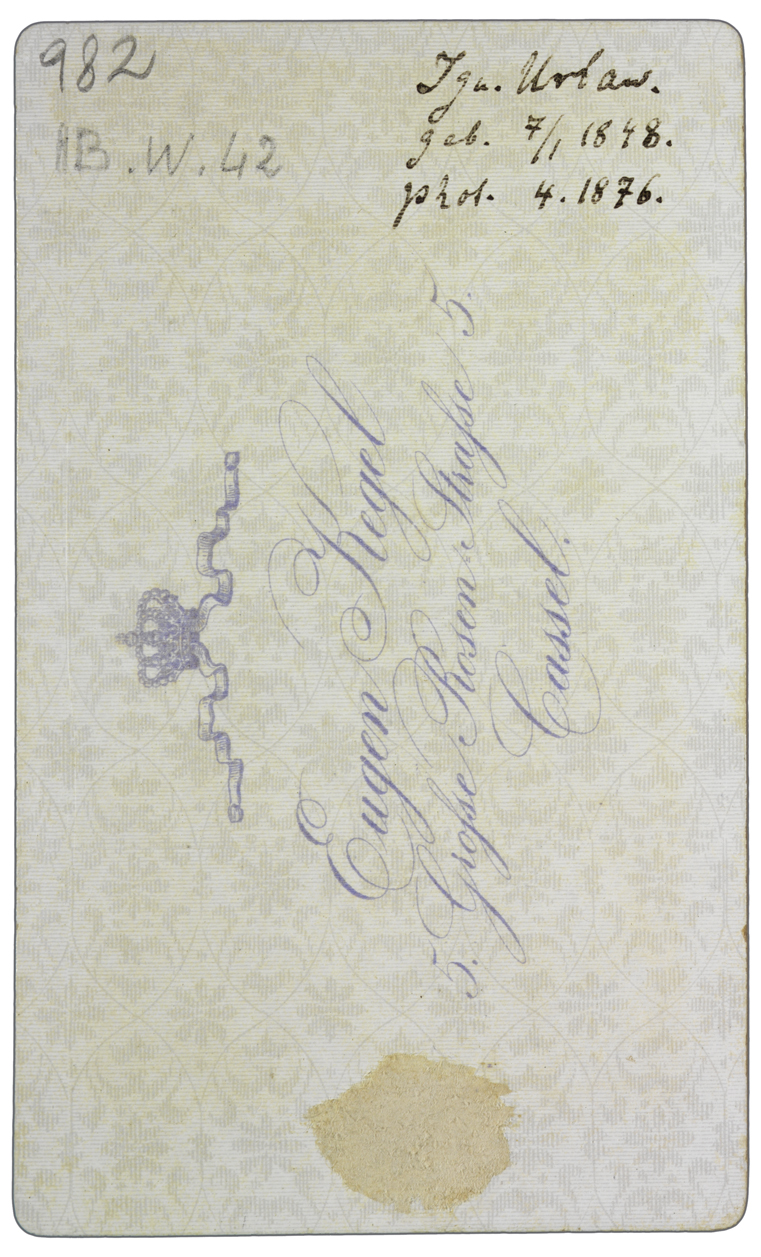 982
HB.W.42
Ign. Urban.
geb. 7/1 1848.
phot. 4. 1876.
Eugen Kegel
5. Große Rosen-Straße 5.
Cassel.